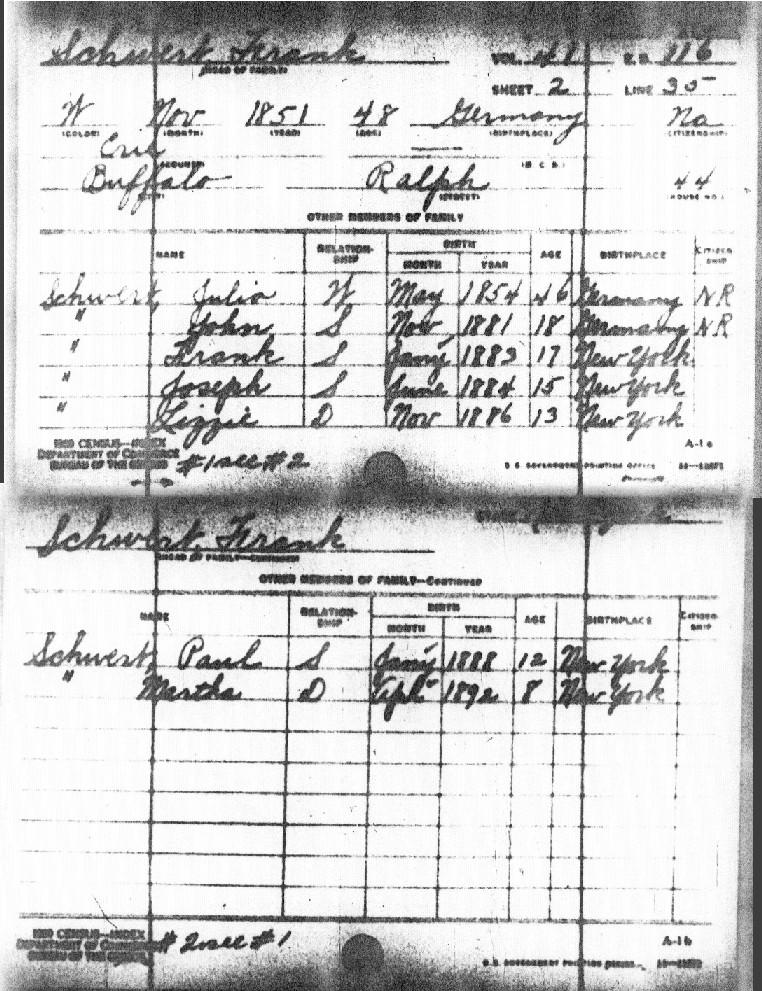 Schwert, Frank VOL. 41 E.D. 116
(HEAD OF FAMILY)
SHEET 2 LINE 35
W Nov 1851 48 Germany Na
(COLOR) (MONTH) (YEAR) (AGE) (BIRTHPLACE) (CITIZENSHIP)
Erie
(COUNTY) (M. C. D.)
Buffalo Ralph 44
(CITY) (STREET) (HOUSE NO.)
OTHER MEMBERS OF FAMILY
NAME RELATION-SHIP BIRTH AGE BIRTHPLACE CITIZEN-SHIP
MONTH YEAR
Schwert, Julia W May 1854 46 Germany NR
" John S Nov 1881 18 Germany NR
" Frank S Jany 1883 17 New York
" Joseph S June 1884 15 New York
" Lizzie D Nov 1886 13 New York
1900 CENSUS—INDEX A-1a
DEPARTMENT OF COMMERCE
BUREAU OF THE CENSUS #1 sec #2 U.S. GOVERNMENT PRINTING OFFICE
Schwert, Frank
HEAD OF FAMILY—CONTINUED
OTHER MEMBERS OF FAMILY—CONTINUED
NAME RELATION-SHIP BIRTH AGE BIRTHPLACE CITIZEN-SHIP
MONTH YEAR
Schwert, Paul S Jany 1888 12 New York
" Martha D Apl 1892 8 New York
1900 CENSUS—INDEX A-1b
DEPARTMENT OF COMMERCE # 2 sec # 1
BUREAU OF THE CENSUS U.S. GOVERNMENT PRINTING OFFICE